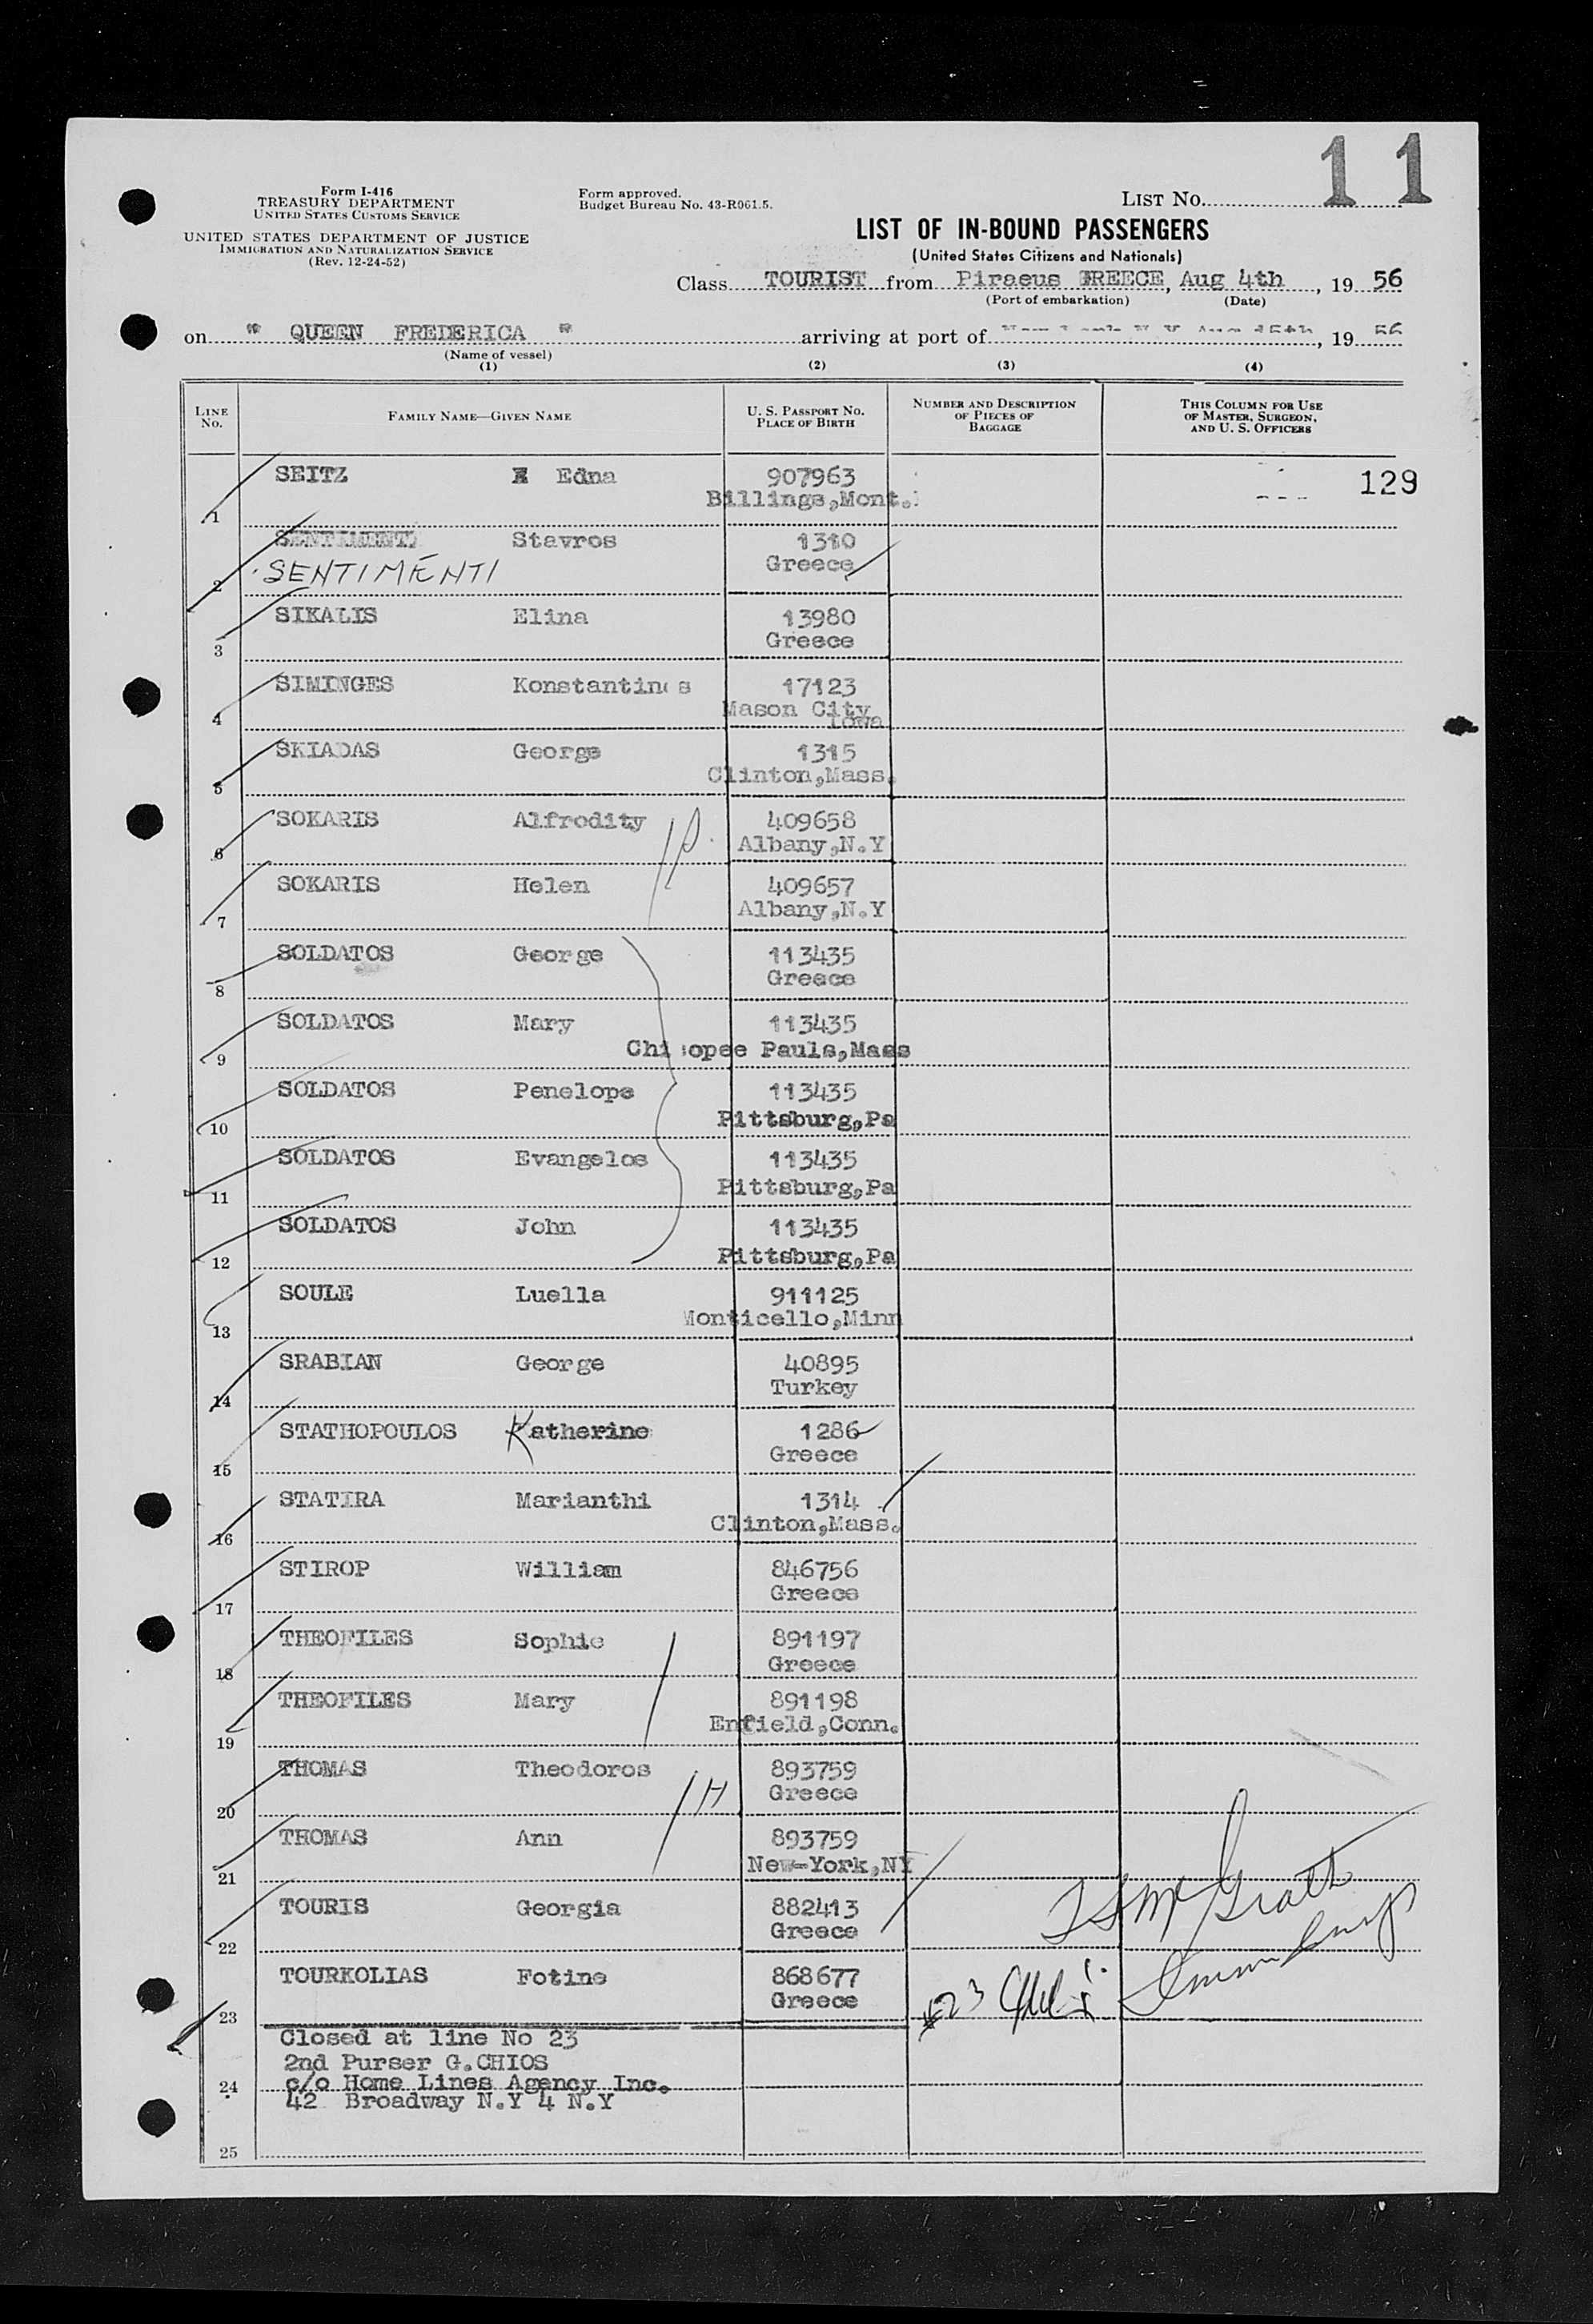 11
Form I-416
TREASURY DEPARTMENT
UNITED STATES CUSTOMS SERVICE
UNITED STATES DEPARTMENT OF JUSTICE
IMMIGRATION AND NATURALIZATION SERVICE
(Rev. 12-24-52)
Form approved.
Budget Bureau No. 43-R061.5.
LIST No.
LIST OF IN-BOUND PASSENGERS
(United States Citizens and Nationals)
Class TOURIST from Piraeus GREECE, Aug 4th, 19 56
(Port of embarkation) (Date)
on " QUEEN FREDERICA " arriving at port of Aug 15th, 19 56
(Name of vessel)
(1) (2) (3) (4)
LINE No. FAMILY NAME—GIVEN NAME U. S. PASSPORT NO. PLACE OF BIRTH NUMBER AND DESCRIPTION OF PIECES OF BAGGAGE THIS COLUMN FOR USE OF MASTER, SURGEON, AND U. S. OFFICERS
SEITZ Edna 907963 129
1 Billings,Mont.
SENTIMENTI Stavros 1310
2 SENTIMENTI Greece
SIKALIS Elina 13980
3 Greece
SIMINGES Konstantinos 17123
4 Mason City Iowa
SKIADAS George 1315
5 Clinton,Mass.
SOKARIS Alfrodity 409658
6 Albany,N.Y
SOKARIS Helen 409657
7 Albany,N.Y
SOLDATOS George 113435
8 Greece
SOLDATOS Mary 113435
9 Chicopee Pauls,Mass
SOLDATOS Penelope 113435
10 Pittsburg,Pa
SOLDATOS Evangelos 113435
11 Pittsburg,Pa
SOLDATOS John 113435
12 Pittsburg,Pa
SOULE Luella 911125
13 Monticello,Minn
SRABIAN George 40895
14 Turkey
STATHOPOULOS Katherine 1286
15 Greece
STATIRA Marianthi 1314
16 Clinton,Mass.
STIROP William 846756
17 Greece
THEOFILES Sophie 891197
18 Greece
THEOFILES Mary 891198
19 Enfield,Conn.
THOMAS Theodoros 893759
20 Greece
THOMAS Ann 893759
21 New-York,NY
TOURIS Georgia 882413
22 Greece
TOURKOLIAS Fotine 868677
23 Greece
Closed at line No 23
2nd Purser G.CHIOS
24 c/o Home Lines Agency Inc.
42 Broadway N.Y 4 N.Y
25